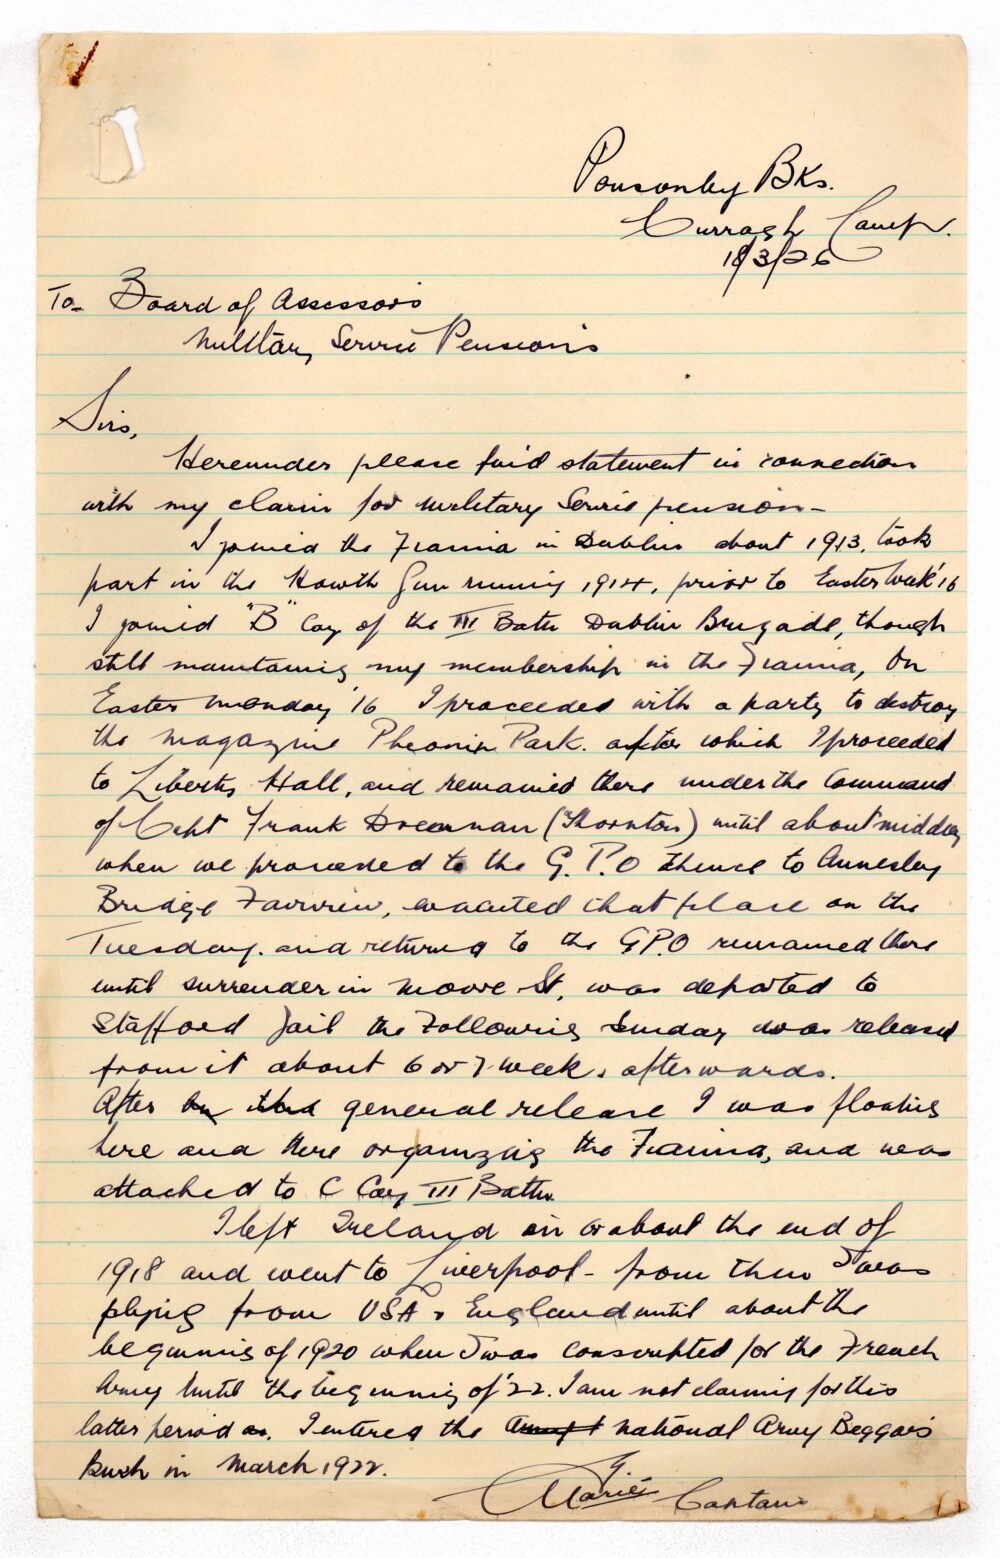 Ponsonby Bks.
Curragh Camp.
18/3/26
To- Board of Assessors
Military Service Pensions
Sirs,
Hereunder please find statement in connection
with my claim for Military Service pension-
I joined the Fianna in Dublin about 1913, took
part in the Howth Gun running 1914, prior to Easter Week '16
I joined "B" Coy of the III Battn Dublin Brigade, though
still maintaining my membership in the Fianna, On
Easter Monday '16 I proceeded with a party to destroy
the magazine Pheonix Park. after which I proceeded
to Liberty Hall, and remained there under the Command
of Capt Frank Dreenan (Thornton) until about midday
when we proceeded to the G.P.O thence to Annesley
Bridge Fairview, evacuted that place on the
Tuesday. and returned to the GPO remained there
until surrender in Moore St, was deported to
Stafford Jail the Following Sunday was released
from it about 6 or 7 weeks afterwards.
After general release I was floating
here and there organizing the Fianna, and was
attached to C Coy III Battn.
I left Ireland on or about the end of
1918 and went to Liverpool - from then I was
plying from USA & England until about the
beginning of 1920 when I was conscripted for the French
Army Until the beginning of '22. I am not claiming for this
latter period. I entered the National Army Beggars
Bush in March 1922.
G. Marie Captain